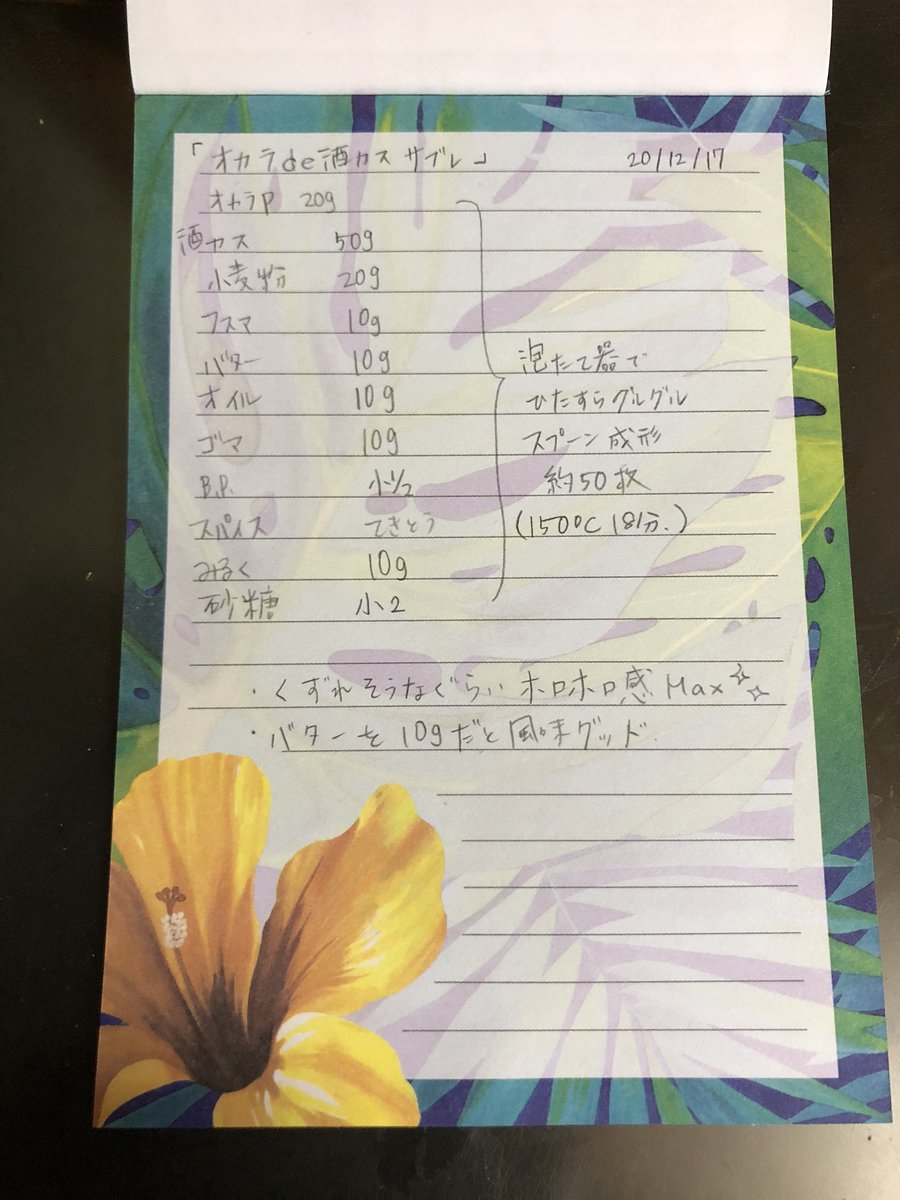 「オカラde酒カスサブレ」 20/12/17
オカラP 20g
酒カス 50g
小麦粉 20g
フスマ 10g
バター 10g
オイル 10g
ゴマ 10g
B.P. 小1/2
スパイス てきとう
みるく 10g
砂糖 小2
泡たて器で
ひたすらグルグル
スプーン成形
約50枚
(150℃ 18分.)
・くずれそうなぐらいホロホロ感Max
・バターを10gだと風味グッド.